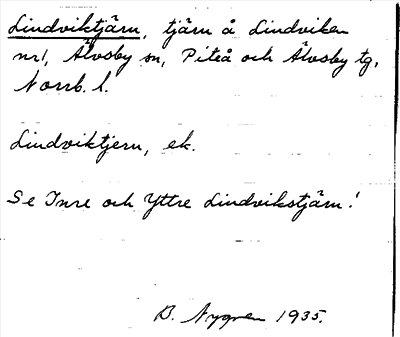 Lindviktjärn, tjärn å Lindviken
nr 1, Älvsby sn, Piteå och Älvsby tg,
Norrb. l.
Lindviktjern, ek.
Se Inre och Yttre Lindvikstjärn!
B. Nygren 1935.